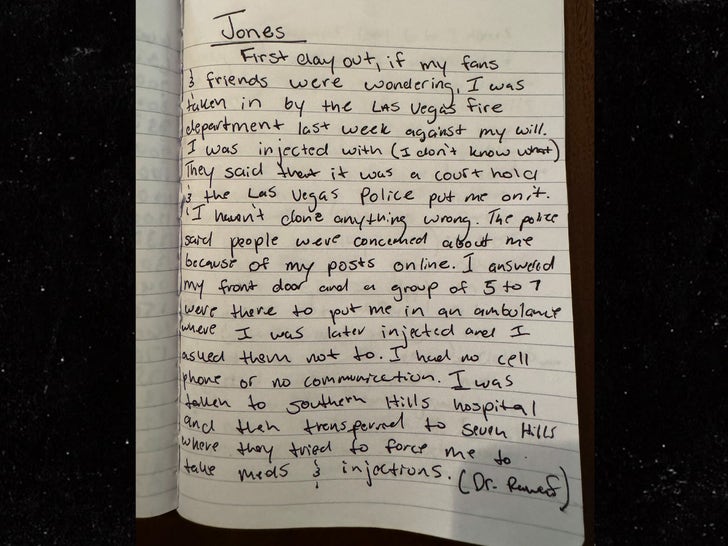 Jones
First day out, if my fans
& friends were wondering, I was
taken in by the Las Vegas fire
department last week against my will.
I was injected with (I don't know what)
They said that it was a court hold
& the Las Vegas Police put me on it.
I haven't done anything wrong. The police
said people were concerned about me
because of my posts online. I answered
my front door and a group of 5 to 7
were there to put me in an ambulance
where I was later injected and I
asked them not to. I had no cell
phone or no communication. I was
taken to Southern Hills hospital
and then transferred to Seven Hills
where they tried to force me to
take meds & injections. (Dr.